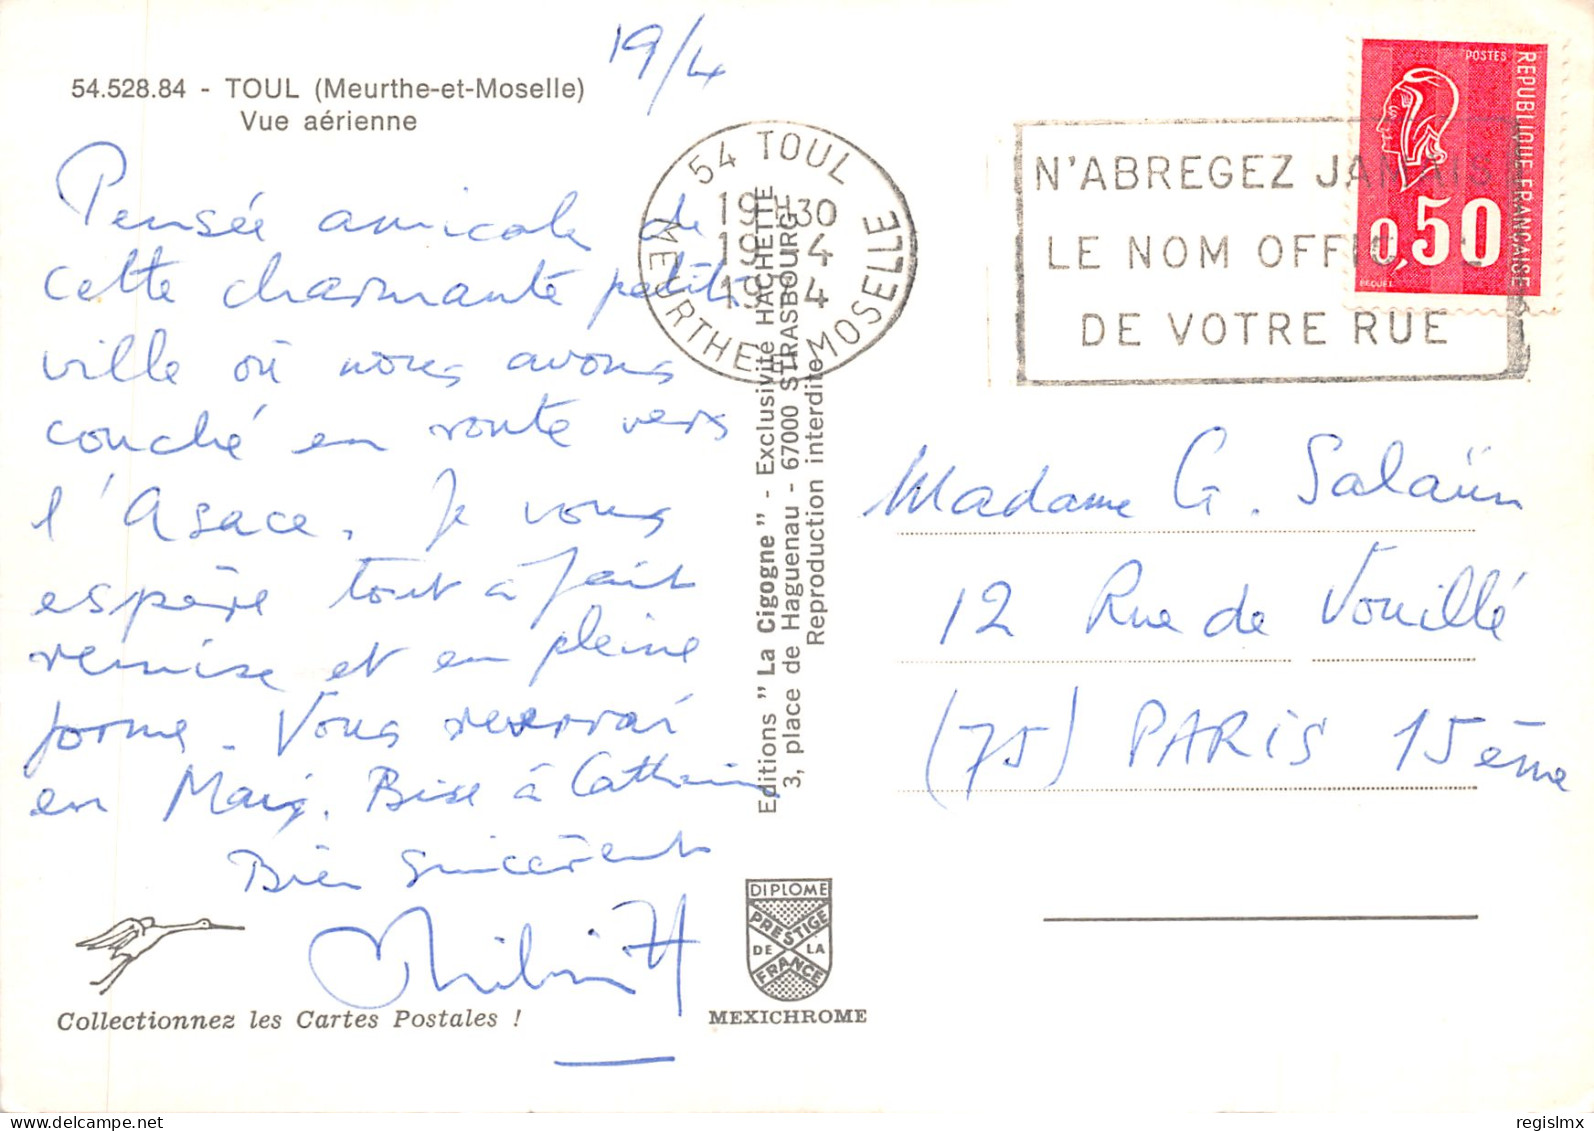 54.528.84 - TOUL (Meurthe-et-Moselle)
Vue aérienne
19/4
Pensée amicale de
cette charmante petite
ville où nous avons
couché en route vers
l'Asace. Je vous
espère tout à fait
remise et en pleine
forme. Vous reverrai
en Mai. Bise à Catherine
Bien sincèrement
Collectionnez les Cartes Postales !
54 TOUL
19H30
19 4
19 4
MEURTHE MOSELLE
Editions "La Cigogne" - Exclusivité HACHETTE
3, place de Haguenau - 67000 STRASBOURG
Reproduction interdite
DIPLOME
PRESTIGE
DE LA
FRANCE
MEXICHROME
N'ABREGEZ JAMAIS
LE NOM OFFICIEL
DE VOTRE RUE
POSTES
REPUBLIQUE FRANCAISE
0,50
BEQUET
Madame G. Salaün
12 Rue de Vouillé
(75) PARIS 15ème
regislmx